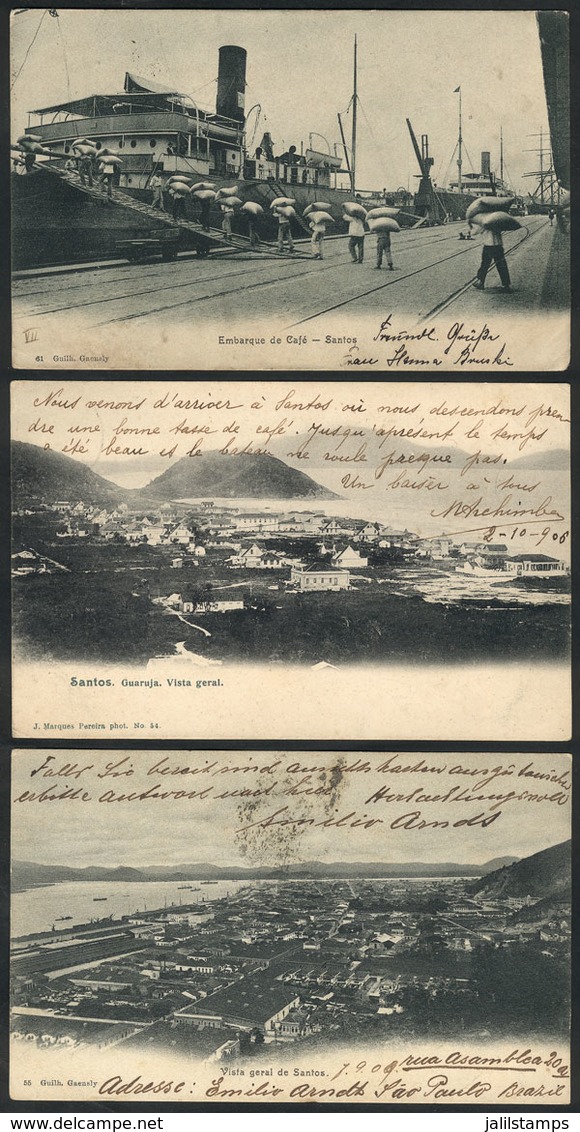 Embarque de Café — Santos
Freundl. Grüße
Frau Hanna Bruski
VII
61 Guilh. Gaensly
Nous venons d'arriver à Santos où nous descendons pren
dre une bonne tasse de café. Jusqu'aprésent le temps
a été beau et le bateau ne roule presque pas.
Un baiser à tous
2-10-906
Santos. Guaruja. Vista geral.
J. Marques Pereira phot. No 54.
Falls Sie bereit sind Ansichtskarten auszutauschen
erbitte Antwort nach hier Hochachtungsvoll
Emilio Arndt
Vista geral de Santos. 7.9.09. rua Asamblea 20a
55 Guilh. Gaensly Adresse: Emilio Arndt São Paulo Brazil
jalilstamps.com